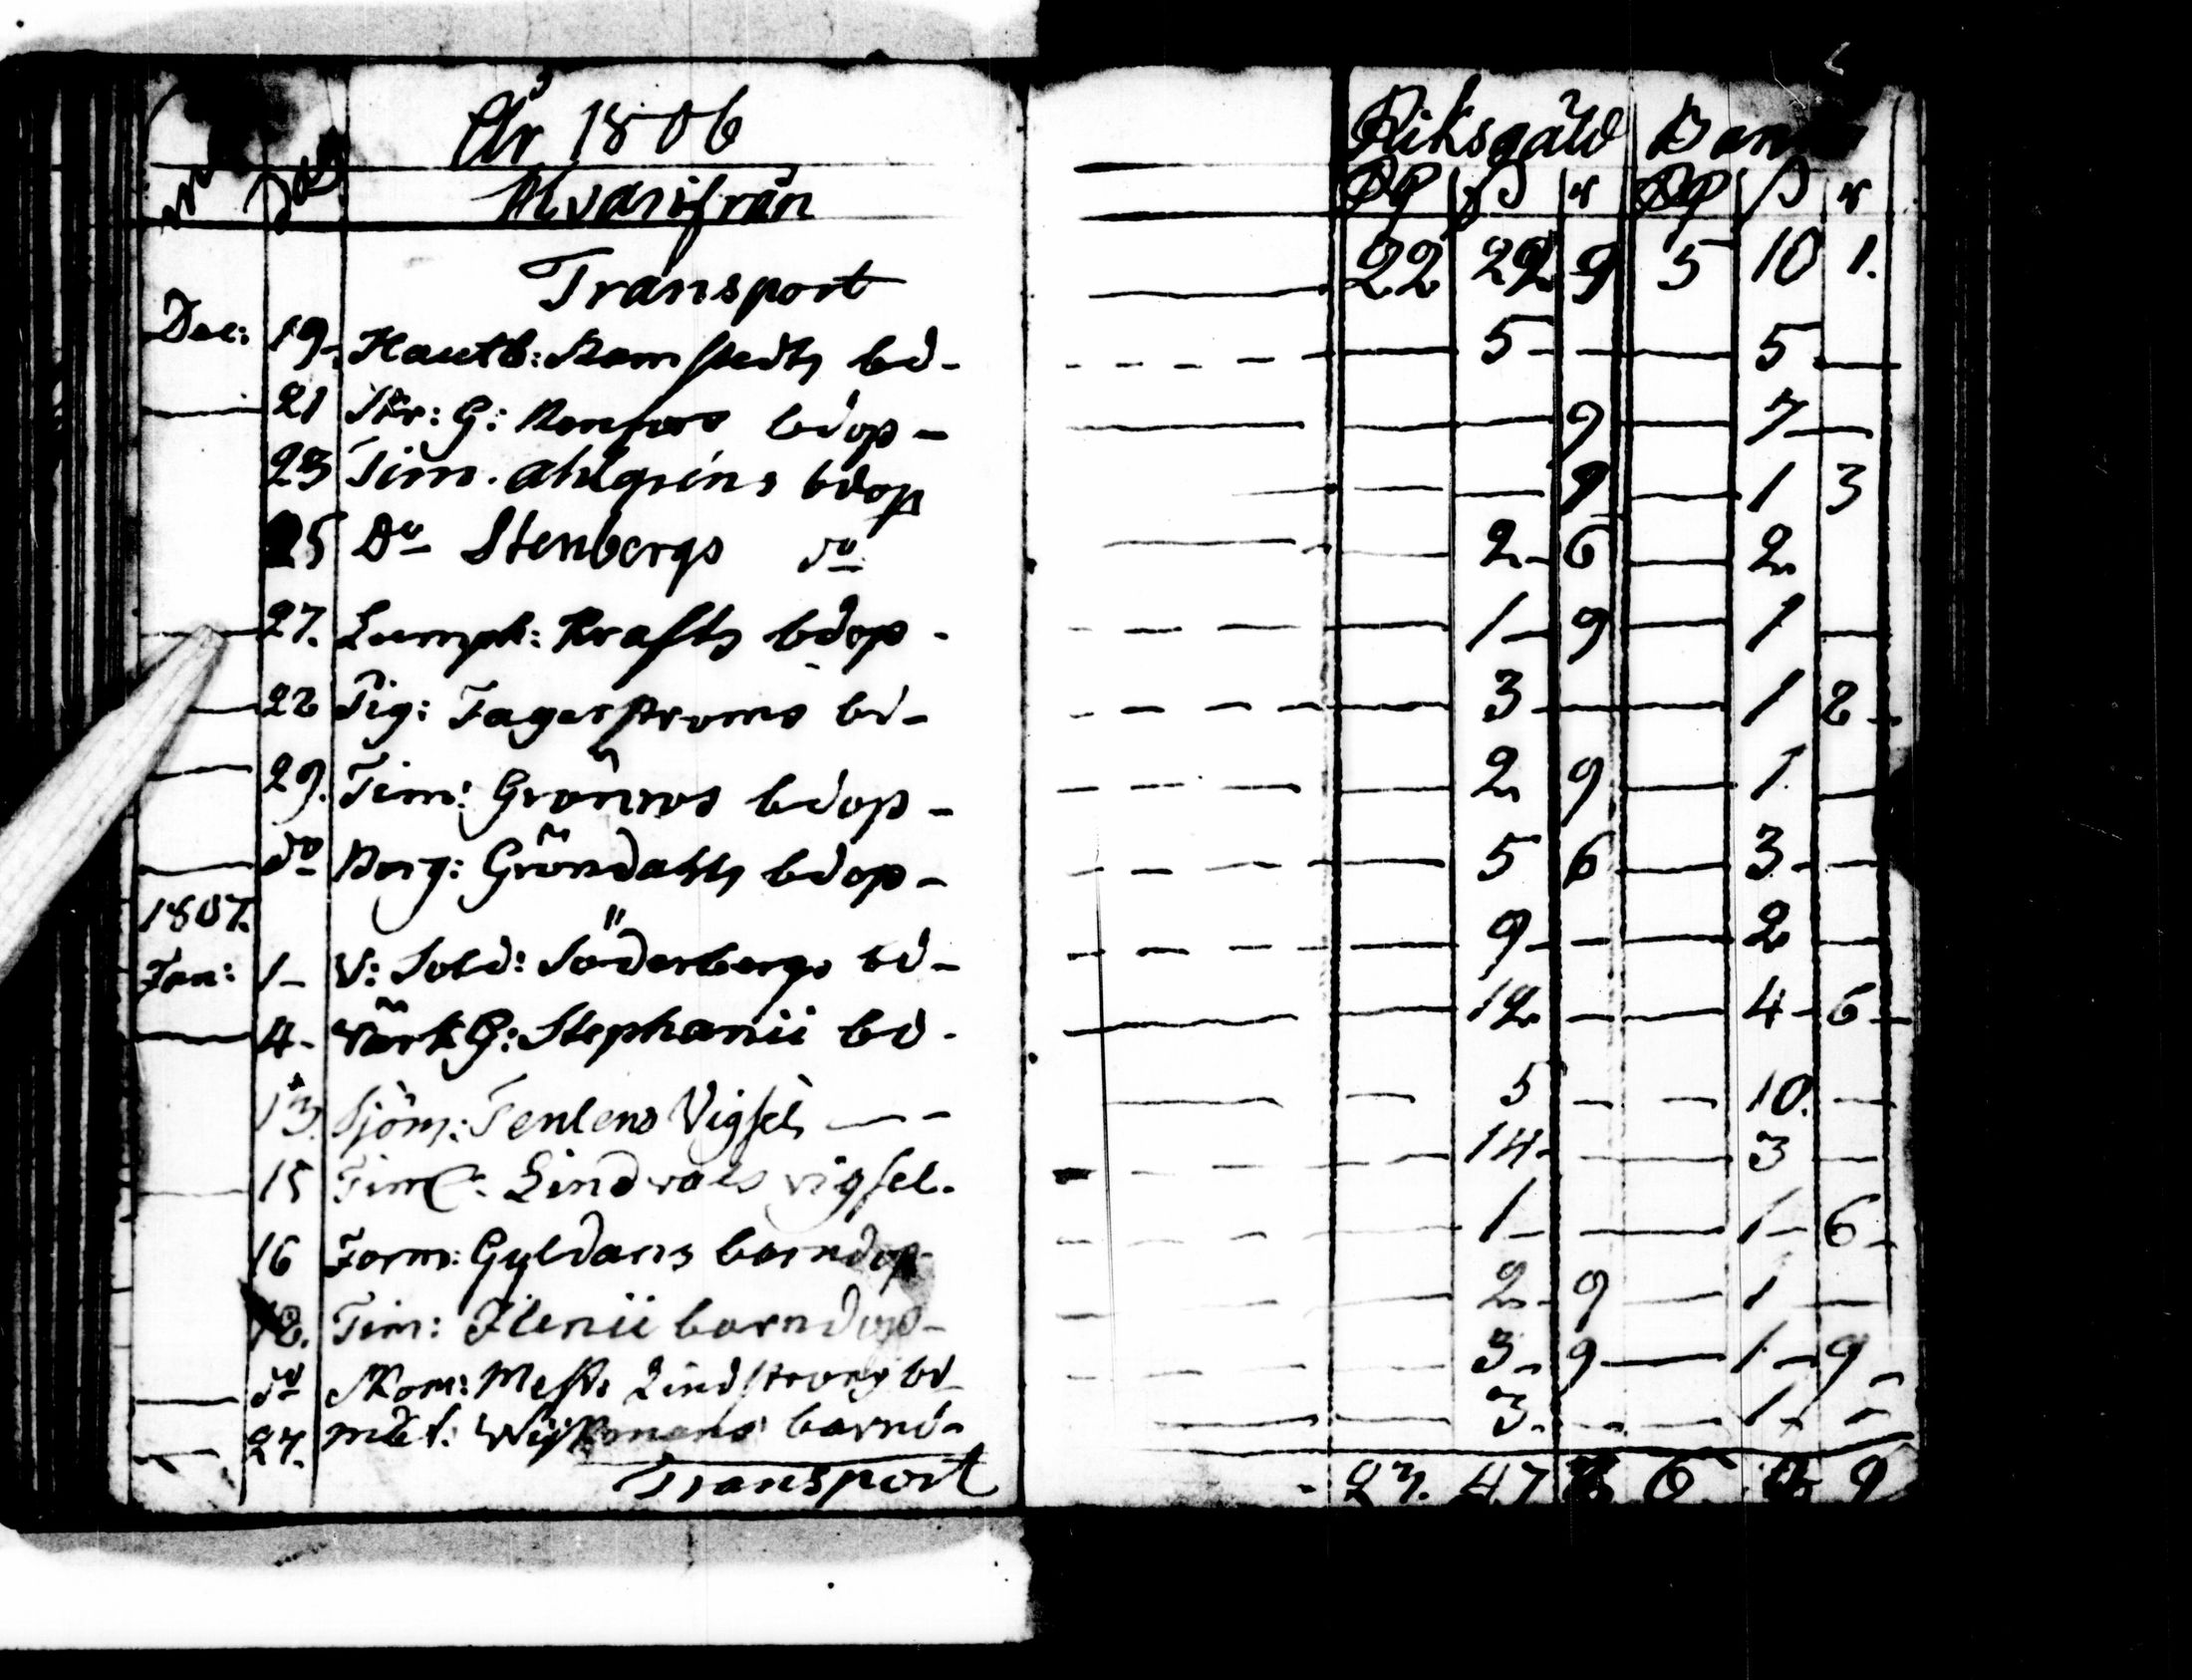 År 1806 Riksgäld Banco
Dag Hvarifrån Rd ß r Rd ß r
Transport 22 29 9 5 10 1.
Dec: 19. Hautb: Ramstedts bd- 5 - 5
21 Skr: G: Renfors bdop - 9 7
23 Tim. Ahlgréns bdop 9 1 3
25 Do Stenbergs do 2 - 6 2
27. Lumpk: Krafts bdop - 1 - 9 1
28 Pig: Fagerstroms bd- 3 1 2
29. Tim: Grönros bdop - 2 9 1
do Borg: Gröndahls bdop - 5 6 3 -
1807.
Jan: 1- V: Sold: Söderbergs bd- 9 - 2
4- Värk G: Stephanii bd - 12 4 - 6
13. Sjöm: Tenlens Vigsel 5 - 10.
15 Tim: Lindvals vigsel. 14 - 3
16 Form: Gyldans barndop- 1 - 1 - 6
18. Tim: Flenii barndop- 2 - 9 1
do Skom: Mest: Lindstroms bd 3 - 9 1 - 9
27. Mat: barnd- 3 - 1 -
Transport 23. 47 6 9